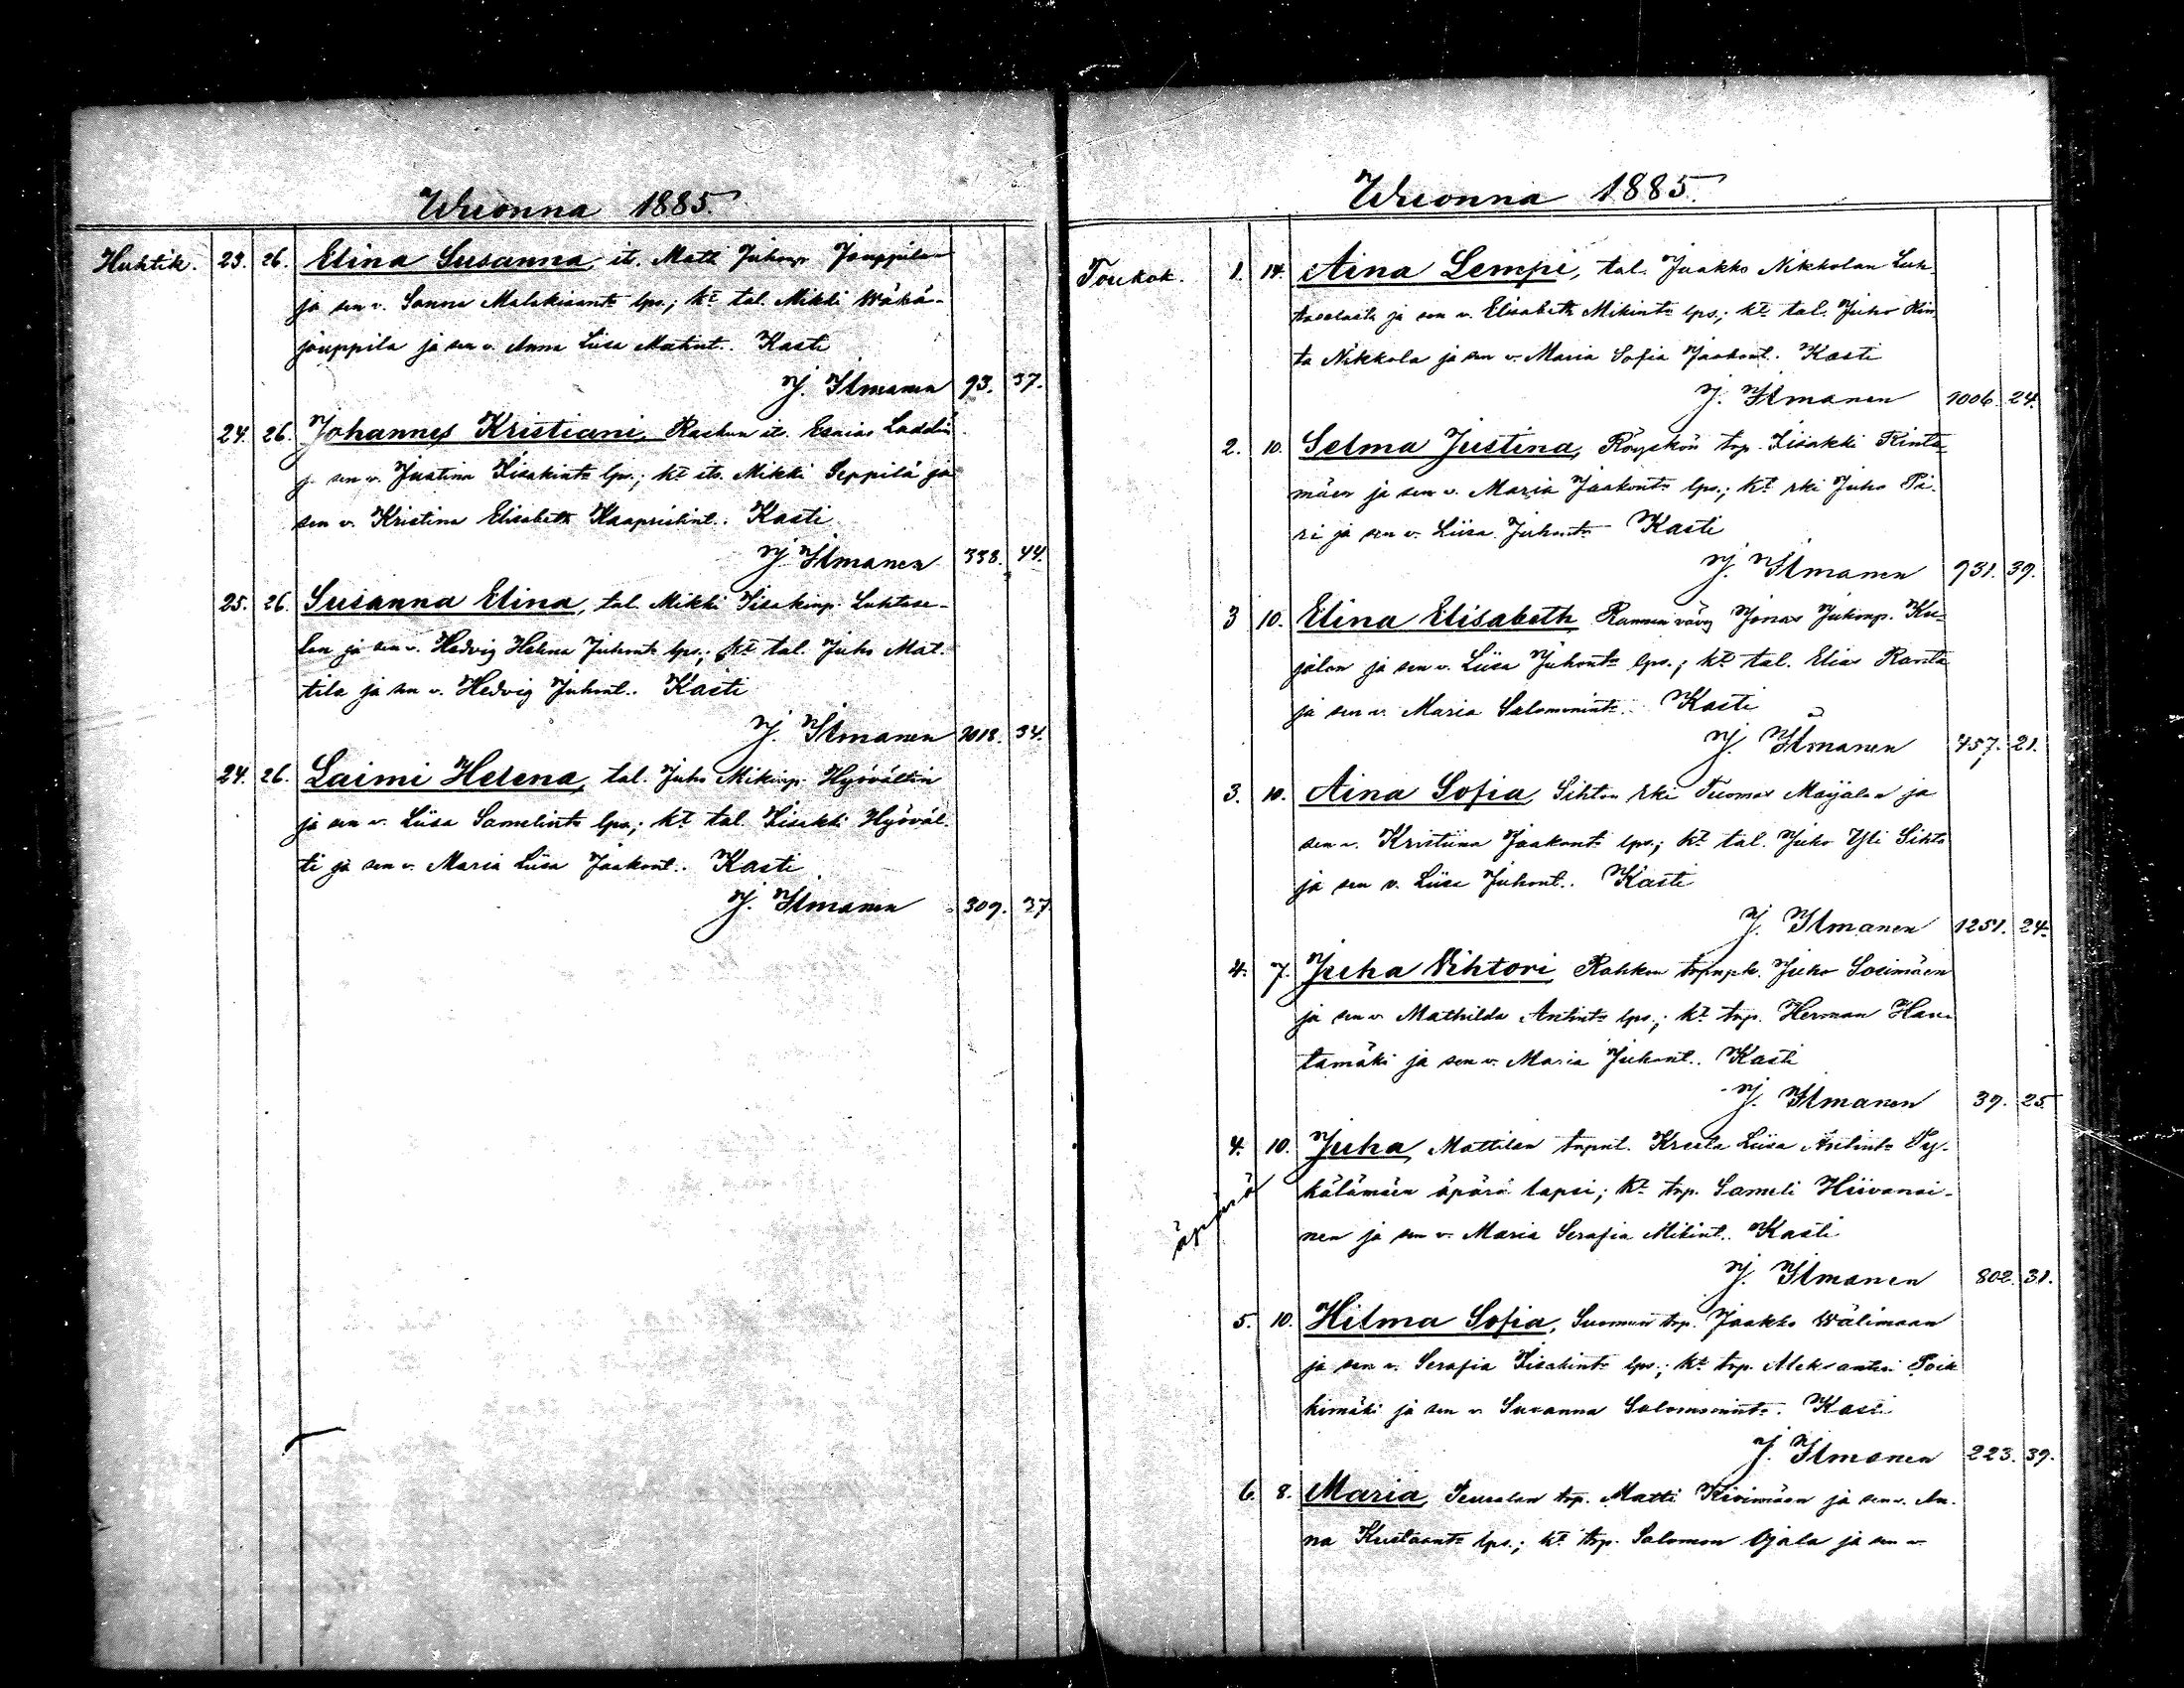 Wuonna 1885.
Huhtik. 23. 26. Elina Susanna, it. Matti Juhonp. Jouppilan
ja sen v. Sanna Malakiaant: lps.; kt: tal. Mikki Wähä-
jouppila ja sen v. Anna Liisa Matint.. Kasti
J. Ilmanen 93. 37.
24. 26. Johannes Kristiani, Raskun its. Esaias Laddin
j. sen v. Justina Iisakint: lps.; kt: its. Mikki Seppilä ja
sen v. Kristina Elisabeth Kaaprielint.. Kasti
J. Ilmanen 338. 44.
25. 26. Susanna Elina, tal. Mikki Iisakinp. Luhtase-
lan ja sen v. Hedvig Helena Juhont: lps.; kt: tal. Juho Mat-
tila ja sen v. Hedvig Juhont.. Kasti
J. Ilmanen 1018. 34.
24. 26. Laimi Helena, tal. Juho Mikinp. Hyövältin
ja sen v. Liisa Samelint: lps.; kt: tal. Iisakki Hyöväl-
ti ja sen v. Maria Liisa Jaakont.. Kasti
J. Ilmanen 309. 37
Wuonna 1885.
Toukok. 1. 14. Aina Lempi, tal. Jaakko Nikkolan Luh-
ja sen v. Elisabeth Mikint: lps.; kt: tal. Juho Rin
ta Nikkola ja sen v. Maria Sofia Jaakont. Kasti
J. Ilmanen 1006. 24.
2. 10. Selma Justina, Röyskön trp. Iisakki Rinta-
mäen ja sen v. Maria Jaakont: lps.; kt: rki Juho Pi-
ri ja sen v. Liisa Juhont: Kasti
J. Ilmanen 931. 39.
3 10. Elina Elisabeth Rannan vävy Jonas Juhonp. Ku-
jalan ja sen v. Liisa Juhont: lps.; kt: tal. Elias Ranta
ja sen v. Maria Salomonint:. Kasti
J. Ilmanen 457. 21.
3. 10. Aina Sofia, Sihton rki Tuomas Maijalan ja
sen v. Kristiina Jaakont: lps.; kt: tal. Juho Yli Sihto
ja sen v. Liisa Juhont.. Kasti
J. Ilmanen 1251. 24.
4. 7. Juha Vihtori, Rahkon trpnpk. Juho Sorimäen
ja sen v. Mathilda Antint: lps.; kt: trp. Herman Hau-
tamäki ja sen v. Maria Juhont.. Kasti
J. Ilmanen 39. 25
4. 10. Juha, Mattilan trpnt. Kreeta Liisa Antint: Py-
äpärä
kälämäen äpärä lapsi; kt: trp. Sameli Hiivanai-
nen ja sen v. Maria Serafia Mikint.. Kasti
J. Ilmanen 802. 31.
5. 10. Hilma Sofia, Luoman trp. Jaakko Wälimaan
ja sen v. Serafia Iisakint: lps.; kt: trp. Aleksanteri Poik
kimäki ja sen v. Susanna Salomonint:. Kasti
J. Ilmanen 223. 39.
6. 8. Maria, Peuralan trp. Matti Kivimäen ja sen v. An-
na Kustaant: lps.; kt: trp. Salomon Ojala ja sen v.